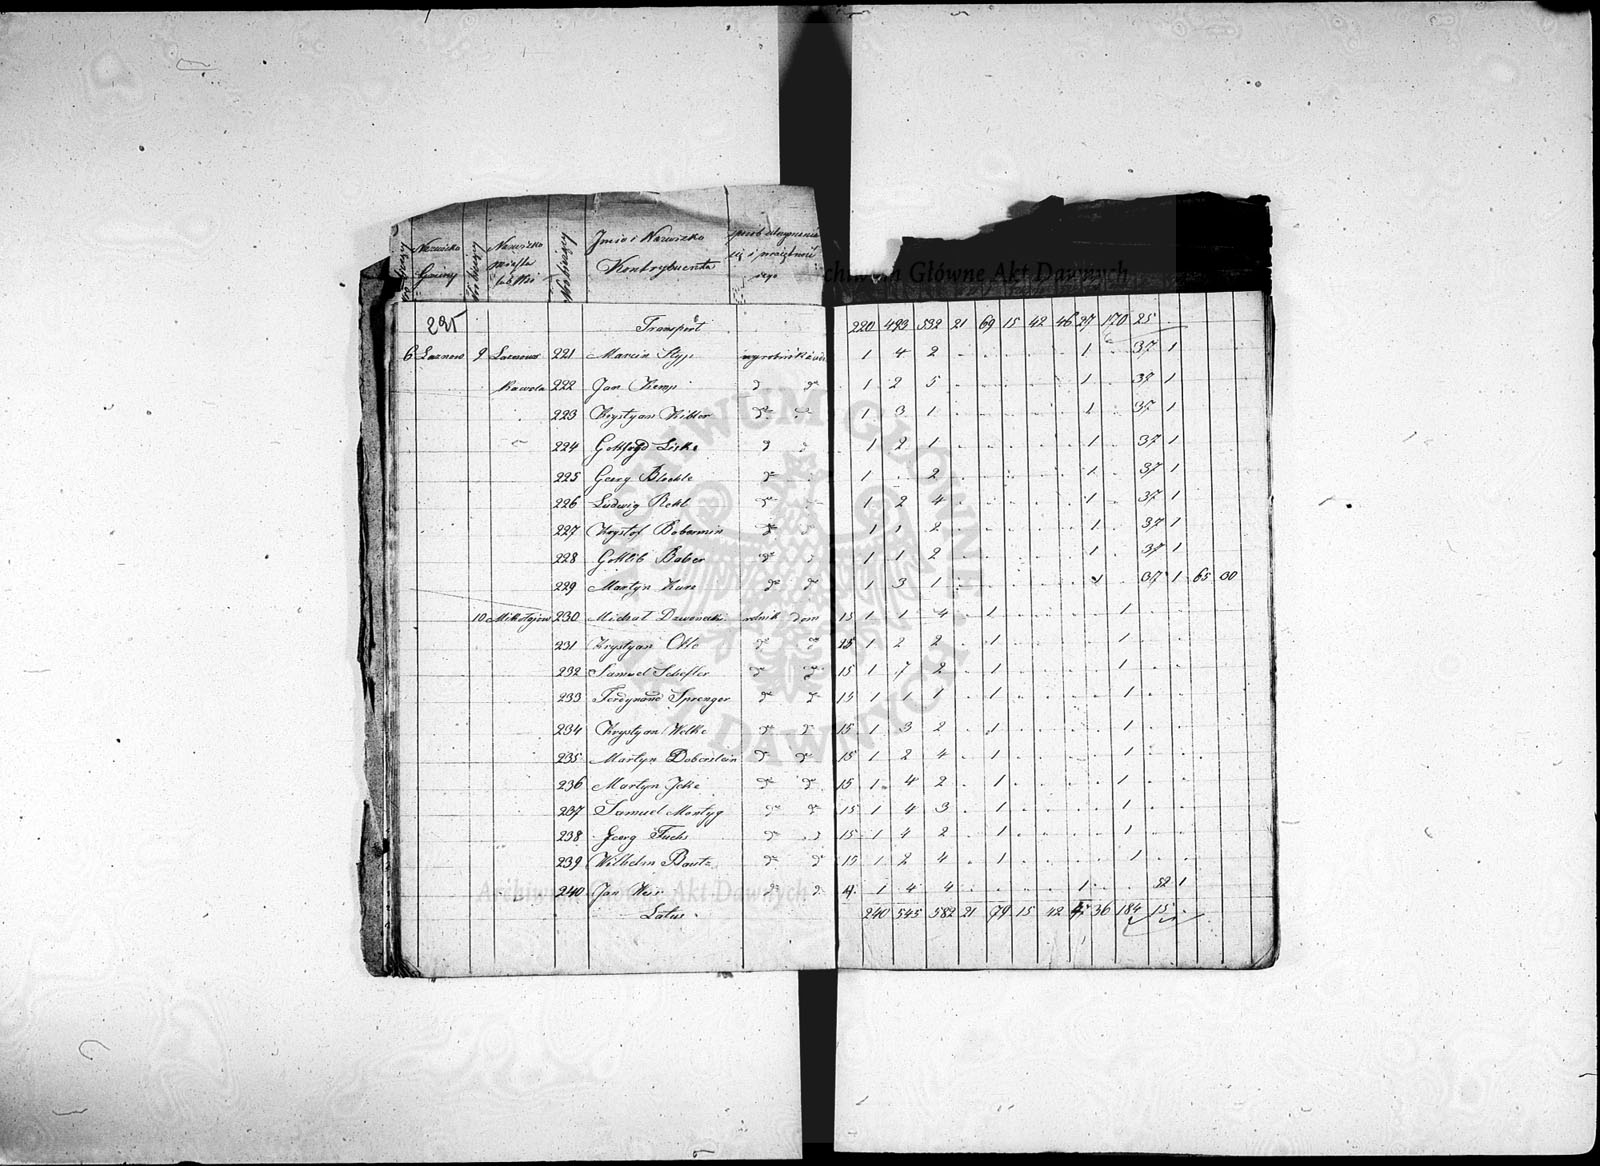 Nazwisko Gminy
Nazwisko
Imie i Nazwisko
Kontrybuenta
Archiwum Główne Akt Dawnych
235 Transport 220 493 532 21 69 15 42 46 27 170 25
6 Laznow 9 Laznows 221 Marcin Styp wyrobnik 1 4 2 1 37 1
Rawola 222 Jan Kemp 1 2 5 1 37 1
223 Krystyan Kibler 1 3 1 1 37 1
224 Gottfryd Liske 1 2 1 1 37 1
225 Georg 1 2 1 37 1
226 Ludwig 1 2 4 1 37 1
227 Krystof Bobermin 1 1 2 1 37 1
228 Gottlib Baber 1 1 2 1 37 1
229 Martyn Kurs 1 3 1 1 37 1 65 30
10 Mikołajow 230 Michał rolnik dom 15 1 1 4 1 1
231 Krystyan Otto 15 1 2 2 1 1
232 Samuel Schefler 15 1 7 2 1 1
233 Ferdynand Sprenger 15 1 1 1 1 1
234 Krystyan Welke 15 1 3 2 1 1
235 Martyn Doberstein 15 1 2 4 1 1
236 Martyn 15 1 4 2 1 1
237 Samuel 15 1 4 3 1 1
238 Georg Fuchs 15 1 4 2 1 1
239 Wilhelm Bautz 15 1 2 4 1 1
240 Jan 1 4 4 1 52 1
Latus 240 545 582 21 79 15 42 36 184 15
ARCHIWUM GŁÓWNE AKT DAWNYCH
Archiwum Główne Akt Dawnych